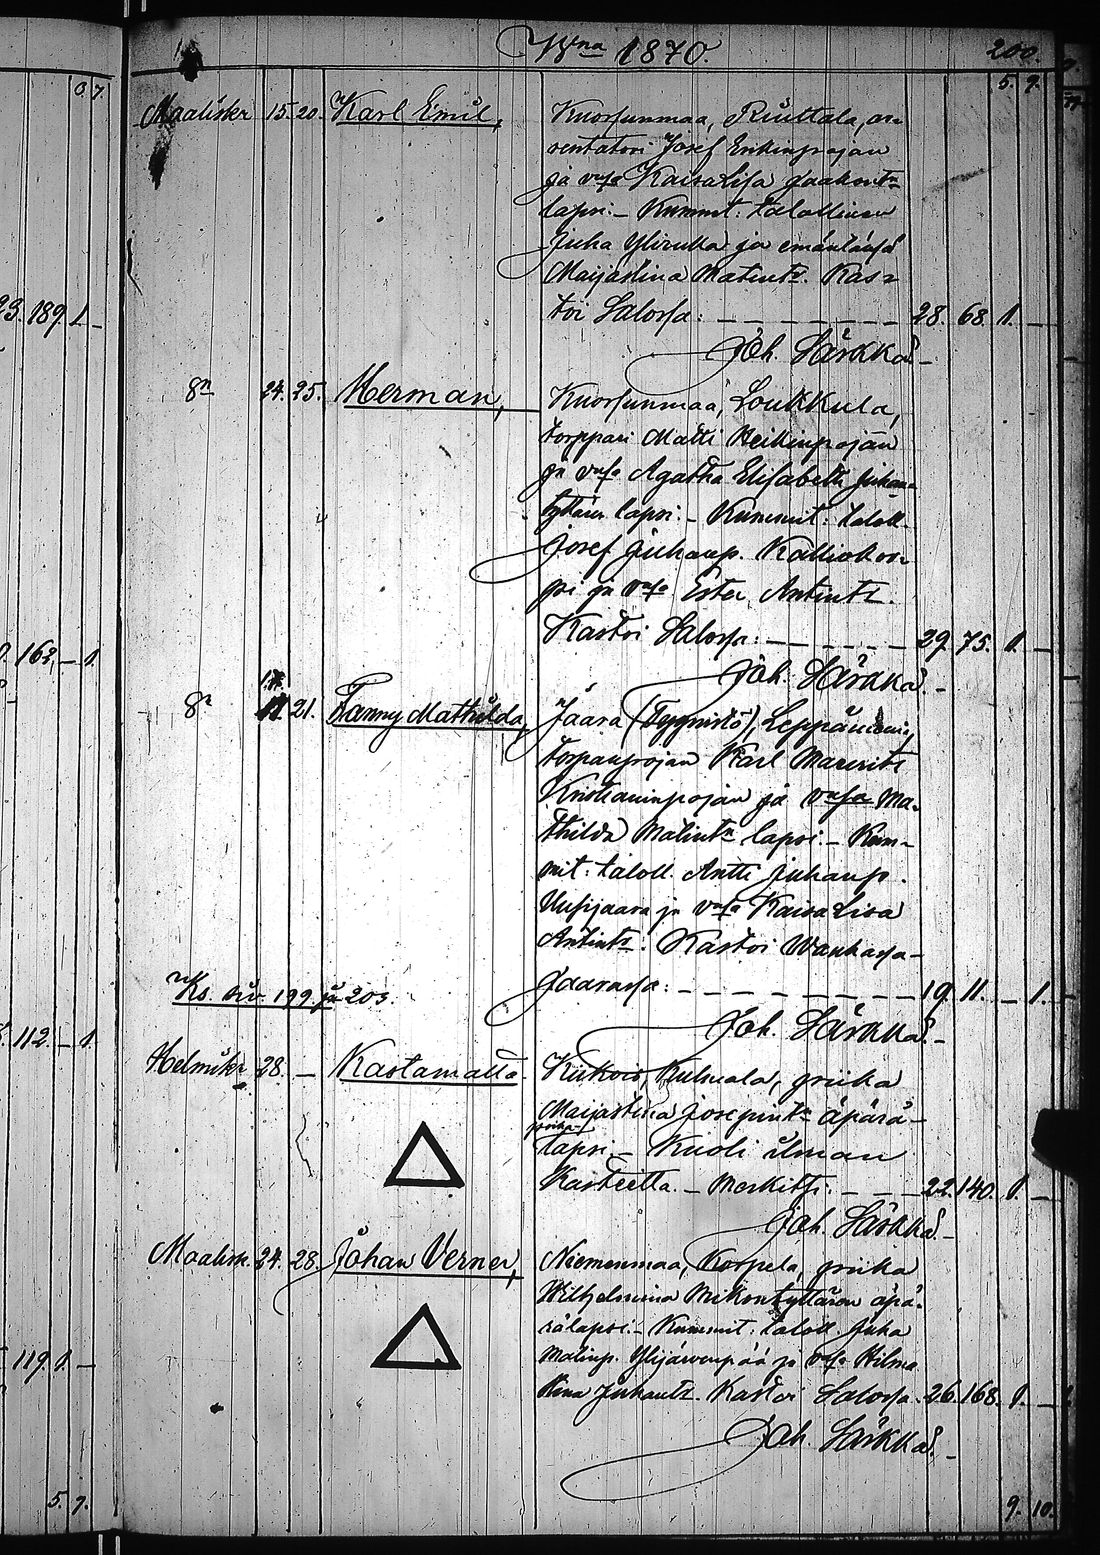 Wna 1870.
200.
5. 9.
Maaliskr 15. 20. Karl Emil,
Kuorsunmaa, Riuttala, ar-
rentatori Josef Erkinpojan
ja vaso Kaisa Lisa Jaakontn
lapsi. – Kummit: talollinen
Juha Ylirukka ja emäntänsä
Maijastina Matintr. Kas-
toi Salossa: 28. 68. 1. –
Joh. Särkkä. –
8n 24. 25. Herman,
Kuorsunmaa, Loukkula,
torppari Matti Heikinpojan
ja vaso Agatha Elisabeth Juhan-
tyttären lapsi. – Kummit: taloll.
Josef Juhanp. Kalliokos-
pi ja vaso Ester Antintr.
Kastoi Salossa: 29. 75. 1. –
Joh. Särkkä. –
8n 21. Fanny Mathilda,
Jaara (Tyynistö), Leppäniemi,
torpanpojan Karl
Kristianinpojan ja vaso Ma-
thilda Matintn lapsi. – Kum-
mit: taloll. Antti Juhanp.
Uusijaara ja vaso Kaisa Lisa
Antintr. Kastoi Wanhassa-
Jaarassa: 19. 11. – 1.
Joh. Särkkä. –
Ks. siv. 199. ja 203.
Helmikr 28. – Kastamatta.
Kiikois, Kulmala, piika
Maijastina Josepintn äpärä-
poika-
lapsi. – Kuoli ilman
Kasteetta. – Merkitsi: 22. 140. 1. –
Joh. Särkkä. –
Maalisk. 24. 28. Johan Verner,
Niemenmaa, Korpela, piika
Wilhelmiina Mikontyttären äpä-
rälapsi. – Kummit: taloll. Juha
Matinp. Ylijärvenpää ja vaso Hilma
Stina Juhantr. Kastoi Salossa. 26. 168. 1. –
Joh. Särkkä. –
9. 10.
0. 7.
23. 189. 1. –
163. – 1.
112. – 1.
119. 1. –
5. 7.